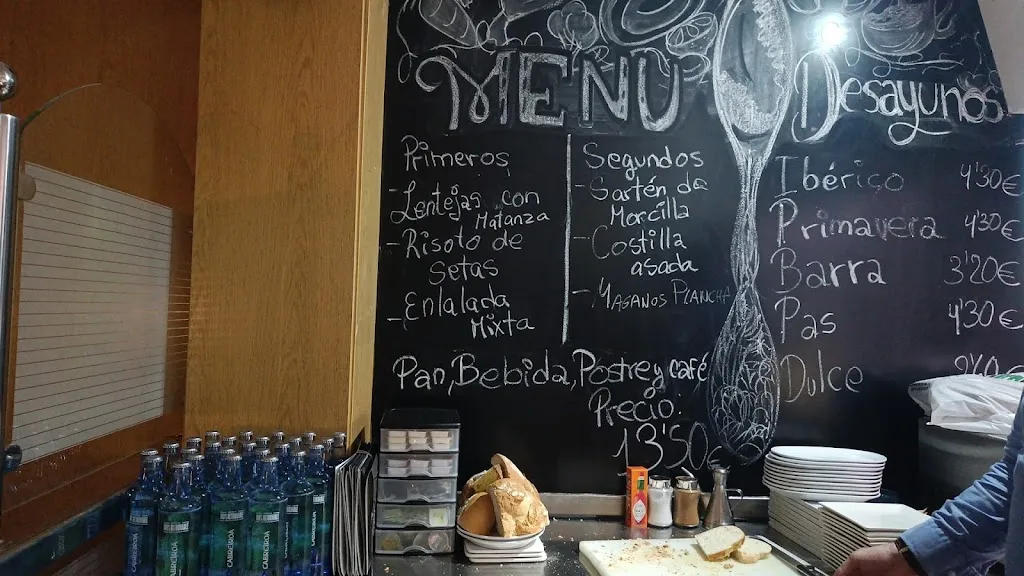 MENU
Primeros
- Lentejas con
Matanza
- Risoto de
Setas
- Enlalada
Mixta
Segundos
- Sartén de
Morcilla
- Costilla
asada
- MAGANOS PLANCHA
Pan, Bebida, Postre y café
Precio:
13'50
Desayunos
Ibérico 4'30€
Primavera 4'30€
Barra 3'20€
Pas 4'30€
Dulce
CABREIROÁ
CABREIROÁ
CABREIROÁ